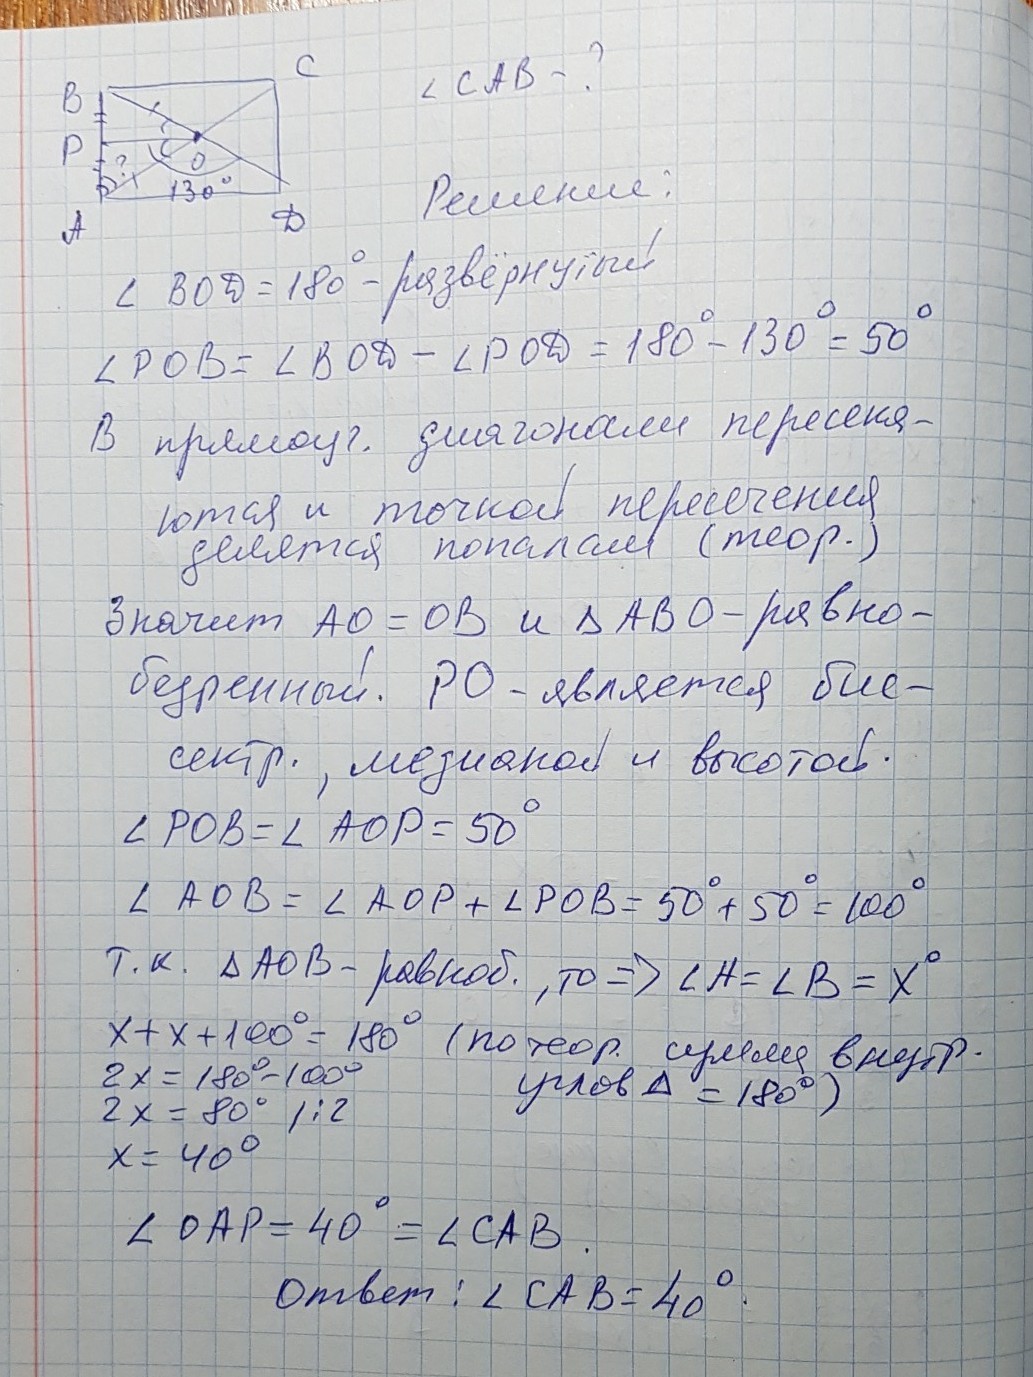 B
C
P
O
130°
A
D
?
∠CAB - ?
Решение:
∠BOD = 180° - развёрнутый
∠POB = ∠BOD - ∠POD = 180° - 130° = 50°
В прямоуг. диагонали пересека-
ются и точкой пересечения
делятся попалам (теор.)
Значит AO = OB и △ABO - равно-
бедренный. PO - является бис-
сектр., медианой и высотой.
∠POB = ∠AOP = 50°
∠AOB = ∠AOP + ∠POB = 50° + 50° = 100°
Т.к. △AOB - равноб., то => ∠A = ∠B = x°
x + x + 100° = 180° (по теор. сумма внутр.
углов △ = 180°)
2x = 180° - 100°
2x = 80° /:2
x = 40°
∠OAP = 40° = ∠CAB.
Ответ: ∠CAB = 40°.